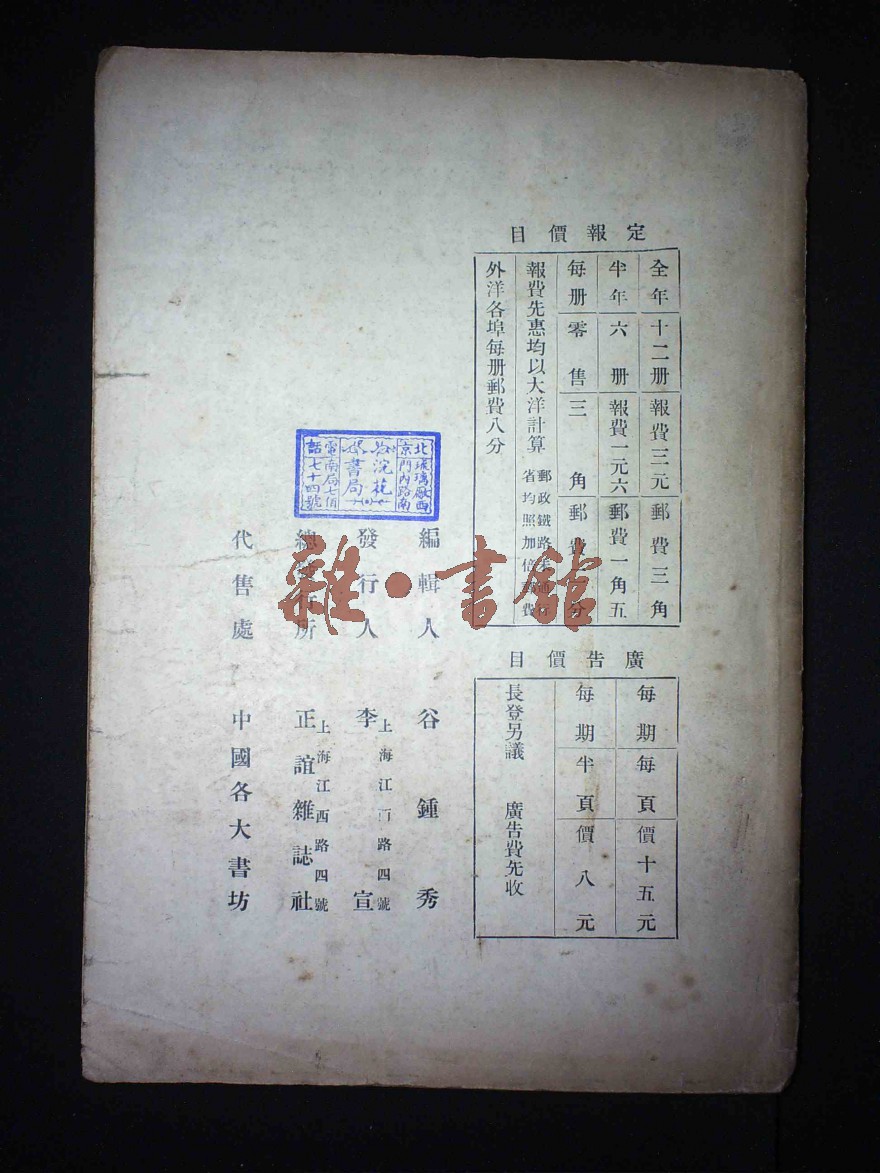 定報價目
全年 十二册 報費三元 郵費三角
半年 六册 報費一元六 郵費一角五
每册 零售 三角 郵費 分
報費先惠均以大洋計算 郵政鐵路
省均照加倍 費
外洋各埠每册郵費八分
廣告價目
每期 每頁 價十五元
每期 半頁 價八元
長登另議 廣告費先收
編輯人 谷鍾秀
發行人 李宣
上海江西路四號
總 行所 正誼雜誌社
上海江西路四號
代售處 中國各大書坊
北京
琉璃廠西
門內路南
浣花
書局
電話
南局七佰
七十四號
雜·書館